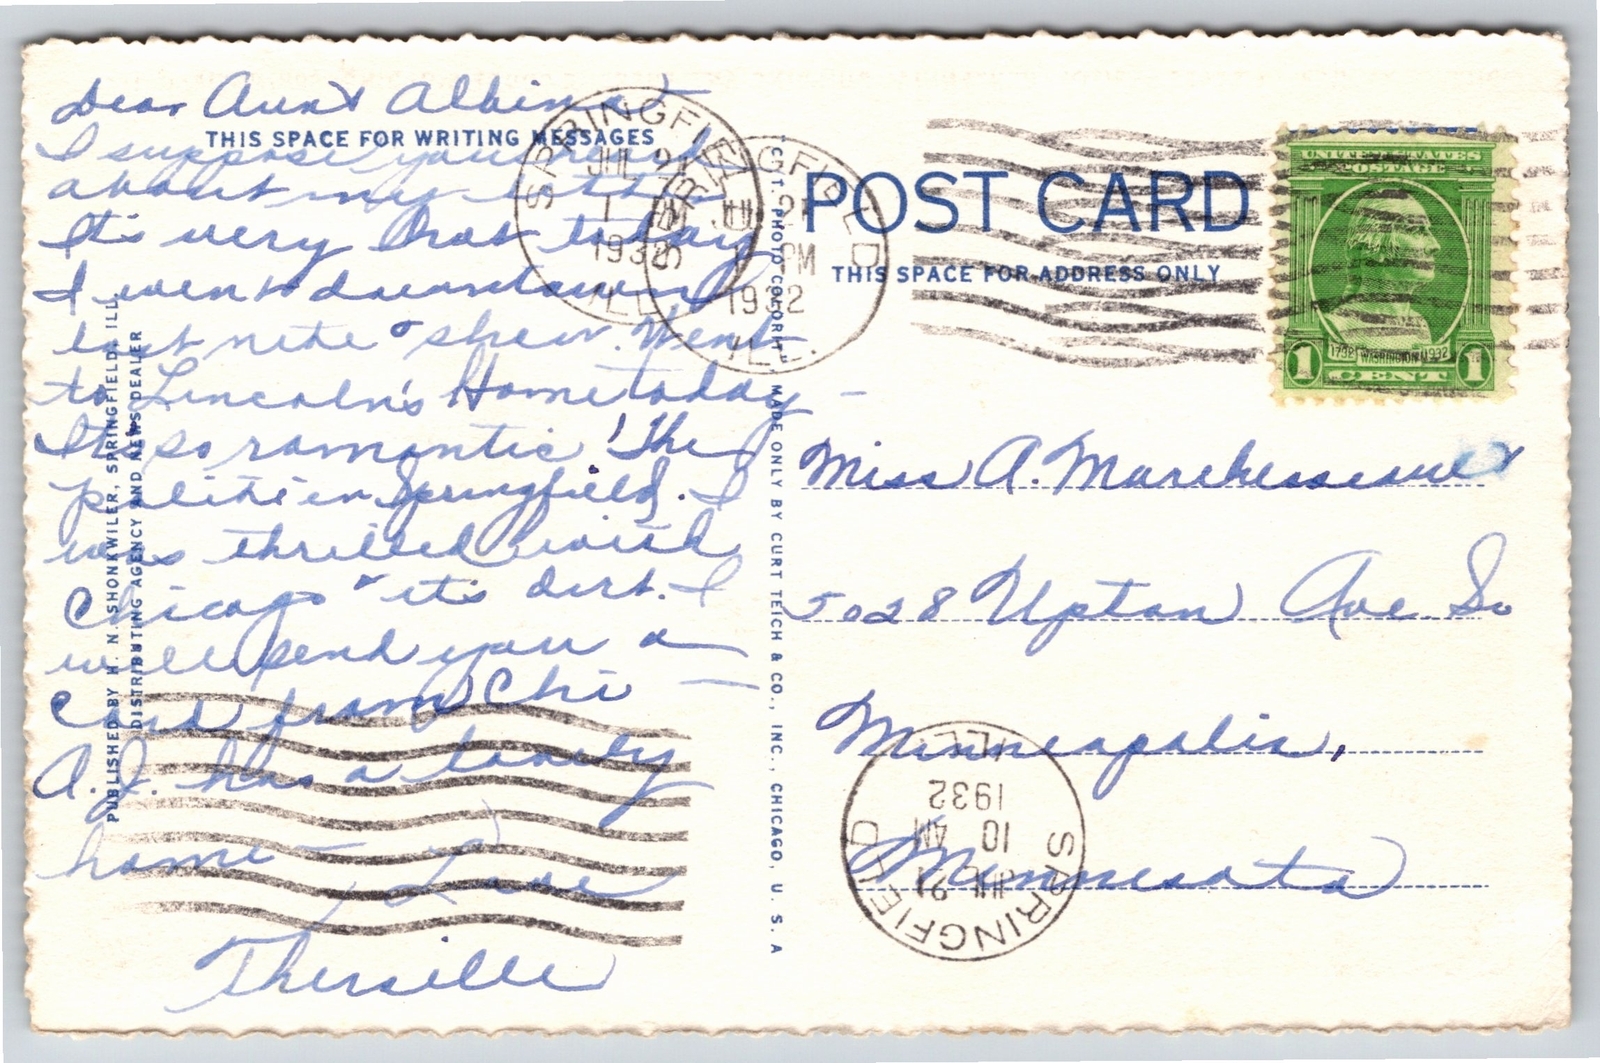 Dear Aunt Albina -
THIS SPACE FOR WRITING MESSAGES
I suppose you heard
about my
It's very hot today
I went downtown
last nite & show. Went
to Lincoln's Home today -
It's so romantic! The
in Springfield. I
was thrilled with
Chicago & it's dirt. I
will send you a
card from Chi -
A.J. has a lovely
home - Love
Thersille
PUBLISHED BY H. N. SHONKWILER, SPRINGFIELD, ILL.
DISTRIBUTING AGENCY AND NEWS DEALER
C. T. PHOTO COLORIT, MADE ONLY BY CURT TEICH & CO., INC., CHICAGO, U. S. A
SPRINGFIELD
JUL 21
1 PM
1932
ILL.
SPRINGFIELD
JUL 21
PM
1932
ILL.
POST CARD
THIS SPACE FOR ADDRESS ONLY
UNITED STATES
POSTAGE
1732 WASHINGTON 1932
1 CENT 1
Miss A. Marchesseault
5028 Upton Ave. So
Minneapolis,
Minnesota
SPRINGFIELD
JUL 21
10 AM
1932
ILL.